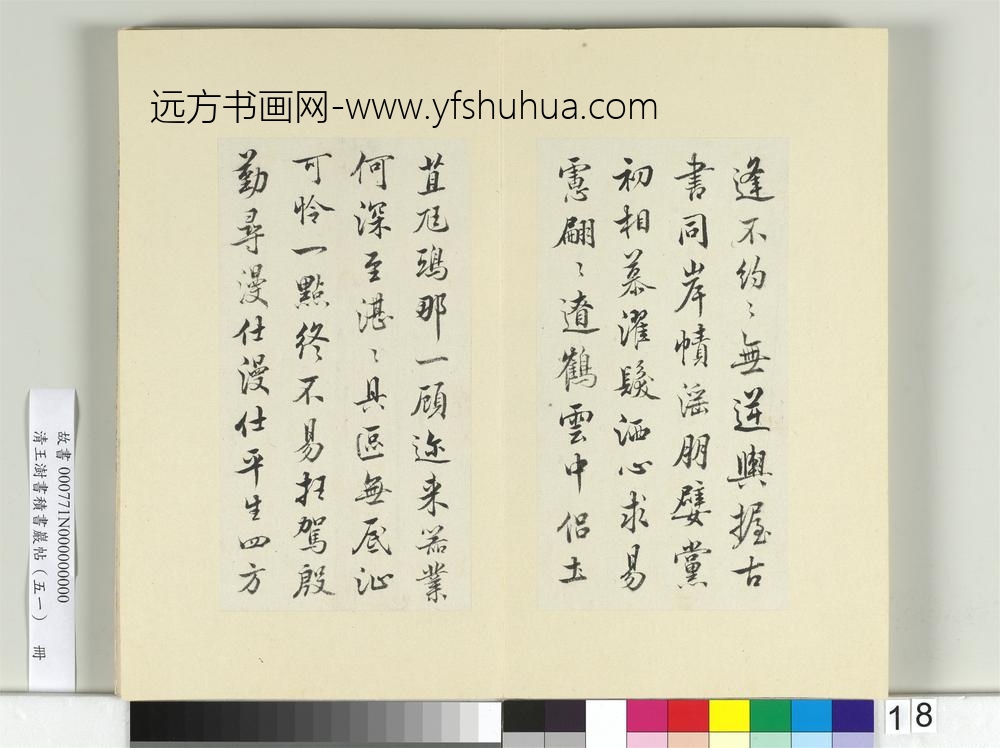 远方书画网-www.yfshuhua.com
逢不約〻無逆輿握古
書同岸幘淫朋嬖黨
初相慕濯髮洒心求易
慮翩〻遼鶴雲中侶土
苴尫鴟那一顧迩来器業
何深至湛〻具區無底沚
可怜一點終不易枉駕殷
勤尋漫仕漫仕平生四方
故書 000771N000000000
清王澍書積書巖帖（五一） 冊
18